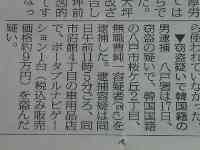 ▼窃盗疑いで韓国籍の
男逮捕　八戸署は17日、
窃盗の疑いで、韓国国籍
の八戸市桜ケ丘2丁目、
無職曹純
容疑者
を
逮捕した。逮捕容疑は同
日午前11時5分ごろ、同
市沼館4丁目の家電用品店
で、ポータブルナビゲー
ション1台(税込み販売
価格約9万円)を盗んだ
疑い。